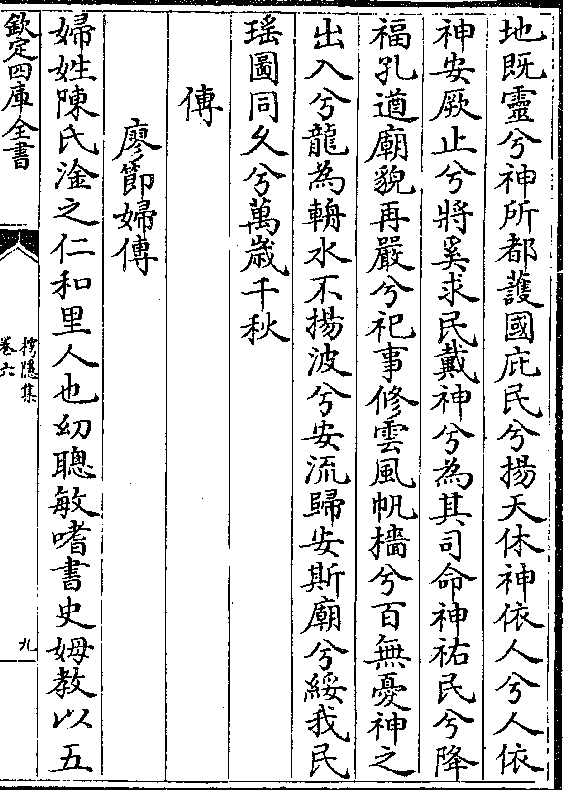 地既靈兮神所都護國庇民兮揚天休神依人兮人依
神安厥止兮將奚求民戴神兮為其司命神祐民兮降
福孔遒廟貌再嚴兮祀事修雲風帆檣兮百無憂神之
出入兮龍為輈水不揚波兮安流歸安斯廟兮綏我民
瑶圖同久兮萬歳千秋
傳
廖節婦傳
婦姓陳氏淦之仁和里人也幼聰敏嗜書史姆教以五
欽定四庫全書
樗隱集
卷六
九